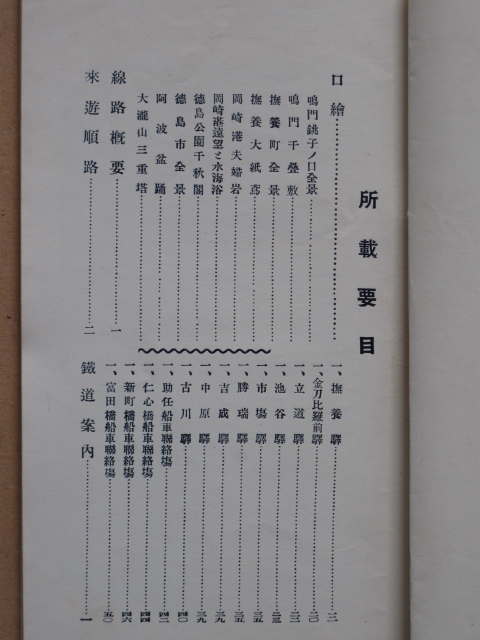 所載要目
口繪
鳴門銚子ノ口全景
鳴門千疊敷
撫養町全景
撫養大紙鳶
岡崎港夫婦岩
岡崎港遠望と水海浴
德島公園千秋閣
德島市全景
阿波盆踊
大瀧山三重塔
線路槪要 一
來遊順路 二
一、撫養驛 三
一、金刀比羅前驛 二〇
一、立道驛
一、池谷驛
一、市場驛
一、勝瑞驛
一、吉成驛
一、中原驛
一、古川驛 四〇
一、助任船車聯絡場 四二
一、仁心橋船車聯絡場 四四
一、新町橋船車聯絡場 四六
一、富田橋船車聯絡場 五〇
鐵道案內 一